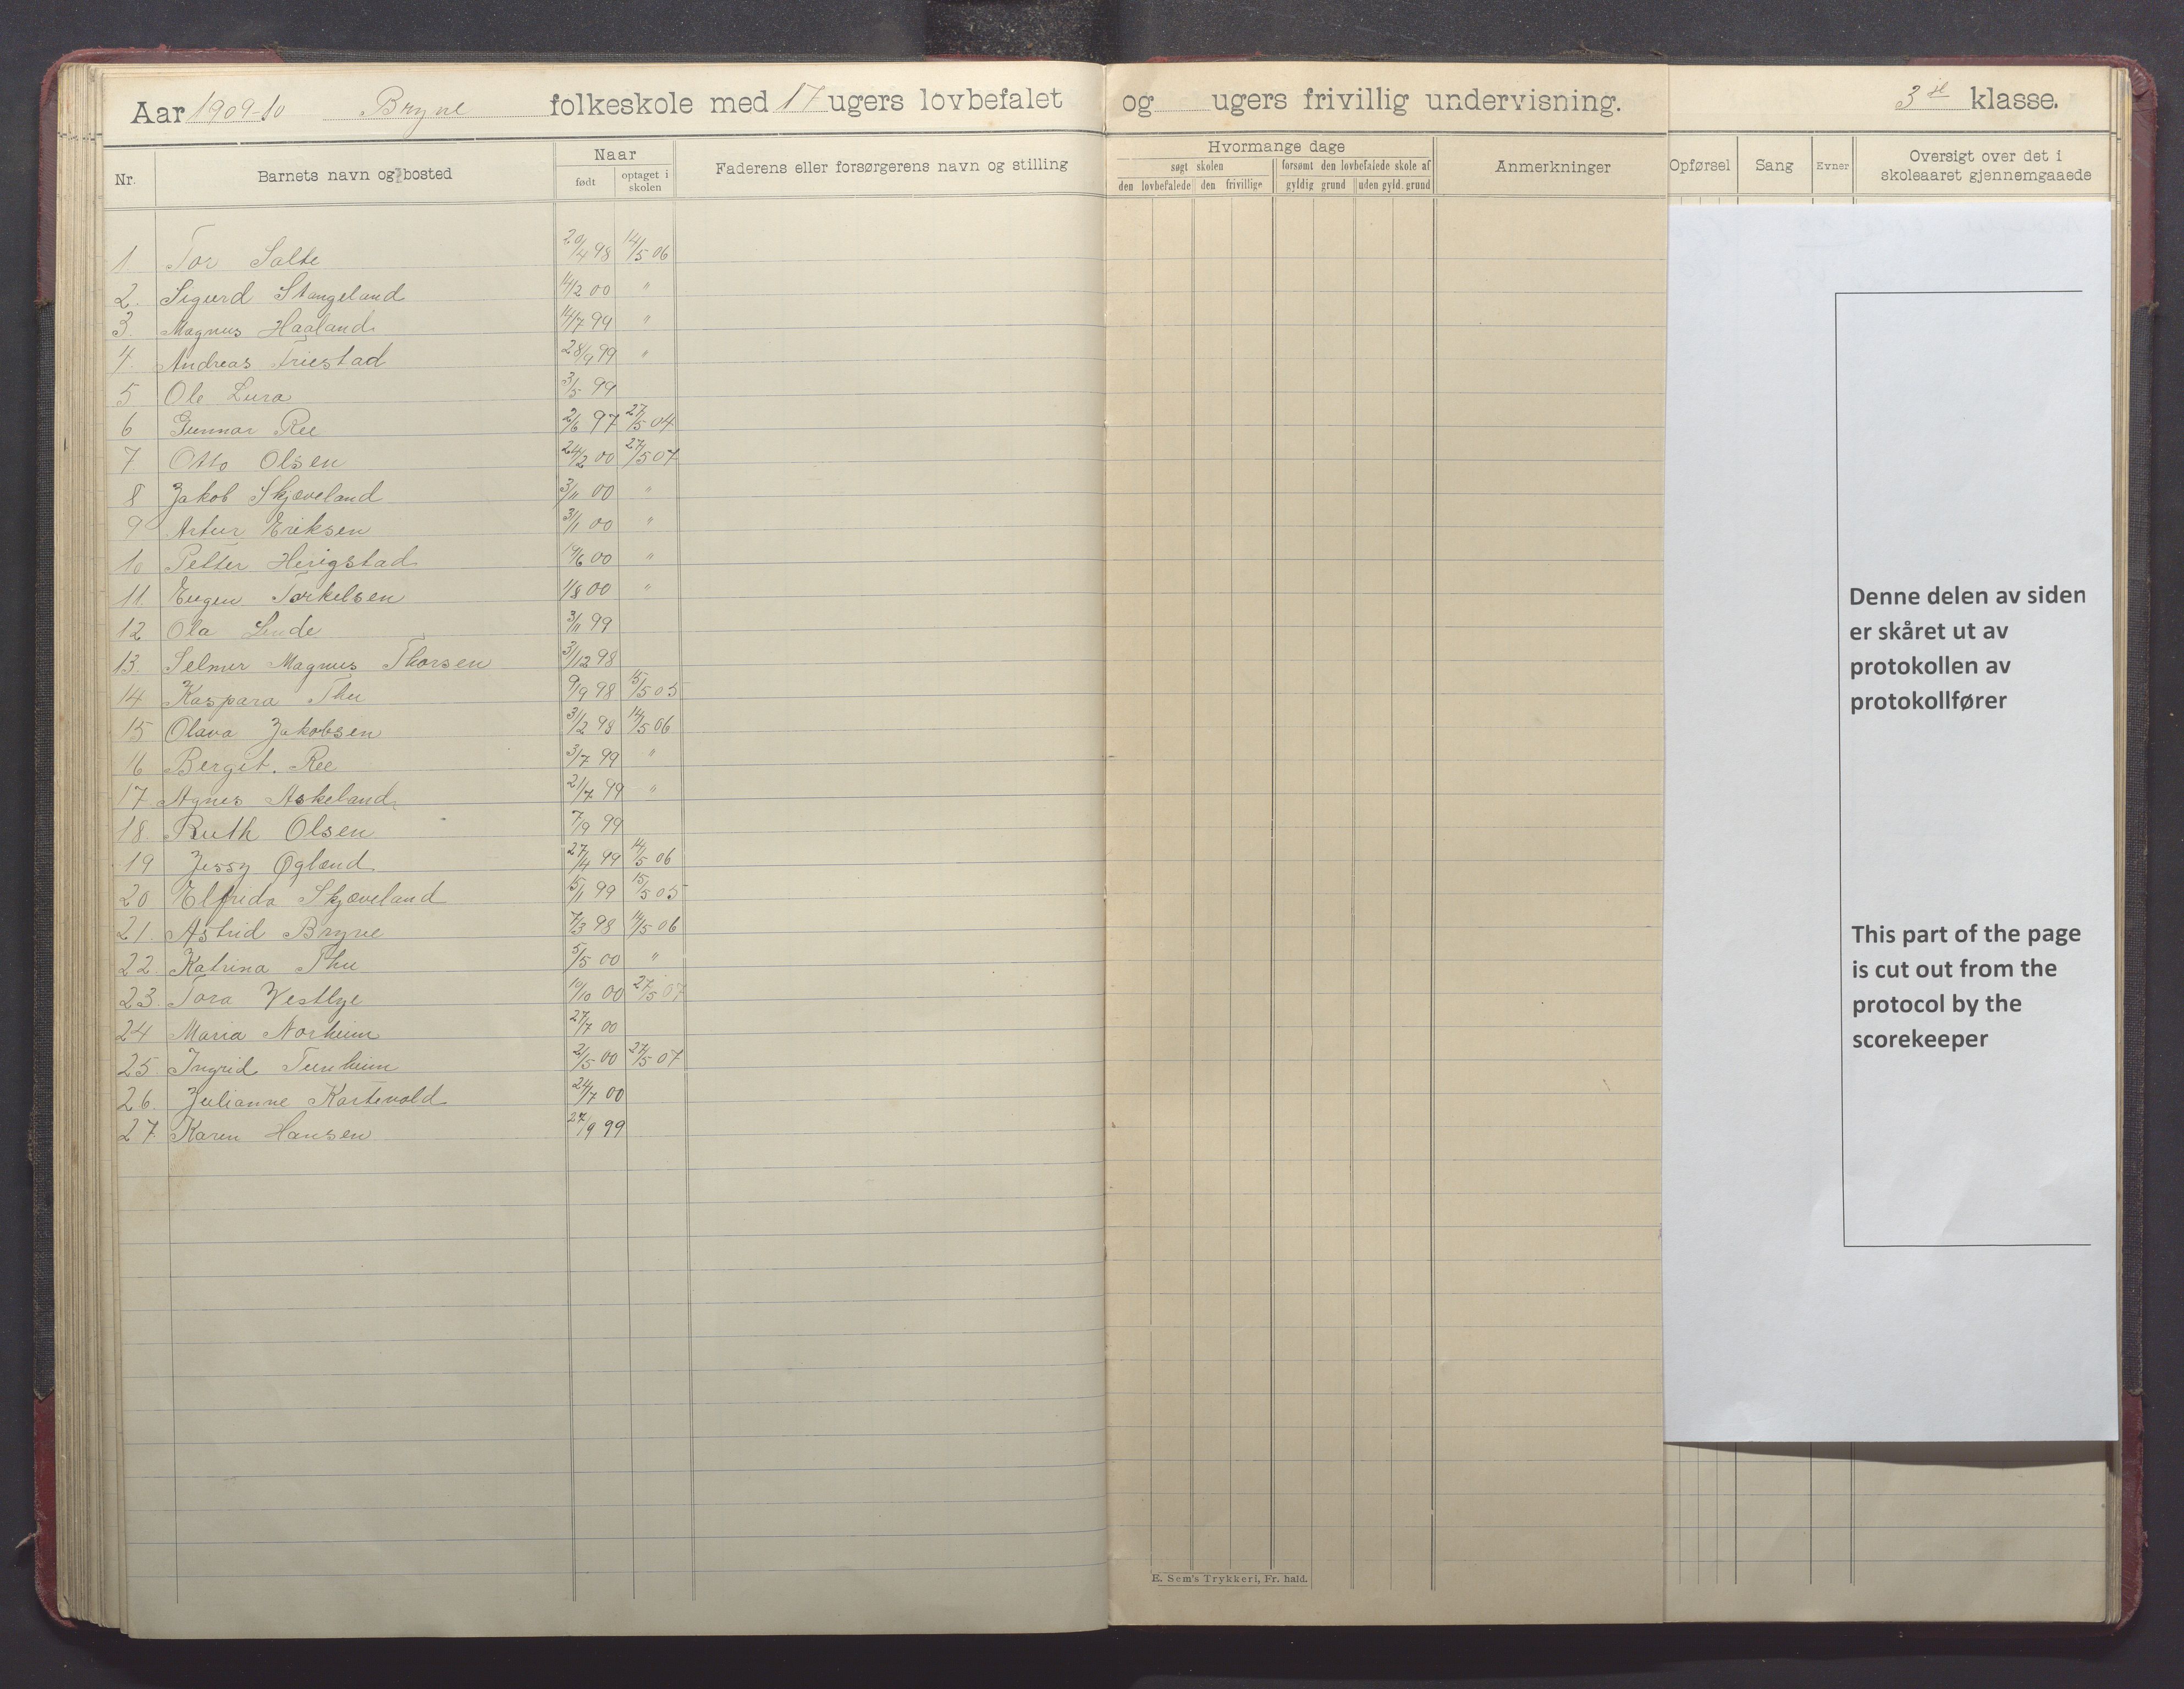 Aar 1909-10 Bryne folkeskole med 17 ugers lovbefalet og ugers frivillig undervisning. 3 klasse.
Nr. Barnets navn og bosted Naar født optaget i skolen Faderens eller forsørgerens navn og stilling Hvormange dage søgt skolen den lovbefalede den frivillige forsømt den lovbefalede skole af gyldig grund uden gyld. grund Anmerkninger Opførsel Sang Evner Oversigt over det i skoleaaret gjennemgaaede
1. Tor Salte 20/4 98 14/5 06
2. Sigurd Stangeland 14/2 00 "
3. Magnus Haaland 14/7 99 "
4. Andreas Friestad 28/9 99 "
5 Ole Lura 3/5 99
6 Gunnar Ree 2/6 97 27/5 04
7. Otto Olsen 24/2 00 27/5 07
8 Jakob Skjæveland 3/11 00 "
9 Artur Eriksen 3/1 00 "
10 Petter Herigstad 00 "
11. Eugen Torkelsen 1/8 00 "
12 Ola Lende 3/11 99
13. Selmer Magnus Thorsen 3/12 98
14 Kaspara Thu 9/9 98 15/5 05
15 Olava Jakobsen 3/2 98 14/5 06
16 Bergit. Ree 3/7 99 "
17 Agnes Askeland 21/7 99 "
18. Ruth Olsen 7/9 99
19 Jessy Øgland 27/4 99 14/5 06
20 Elfrida Skjæveland 15/1 99 15/5 05
21. Astrid Bryne 7/3 98 14/5 06
22. Katrina Thu 5/5 00 "
23. Tora Vestlye 10/10 00 27/5 07
24 Maria Norheim 27/7 00
25. Ingrid Tunheim 2/5 00 27/5 07
26. Julianne Kartevold 24/7 00
27. Karen Hansen 27/9 99
E. Sem's Trykkeri, Fr. hald.
Denne delen av siden
er skåret ut av
protokollen av
protokollfører
This part of the page
is cut out from the
protocol by the
scorekeeper